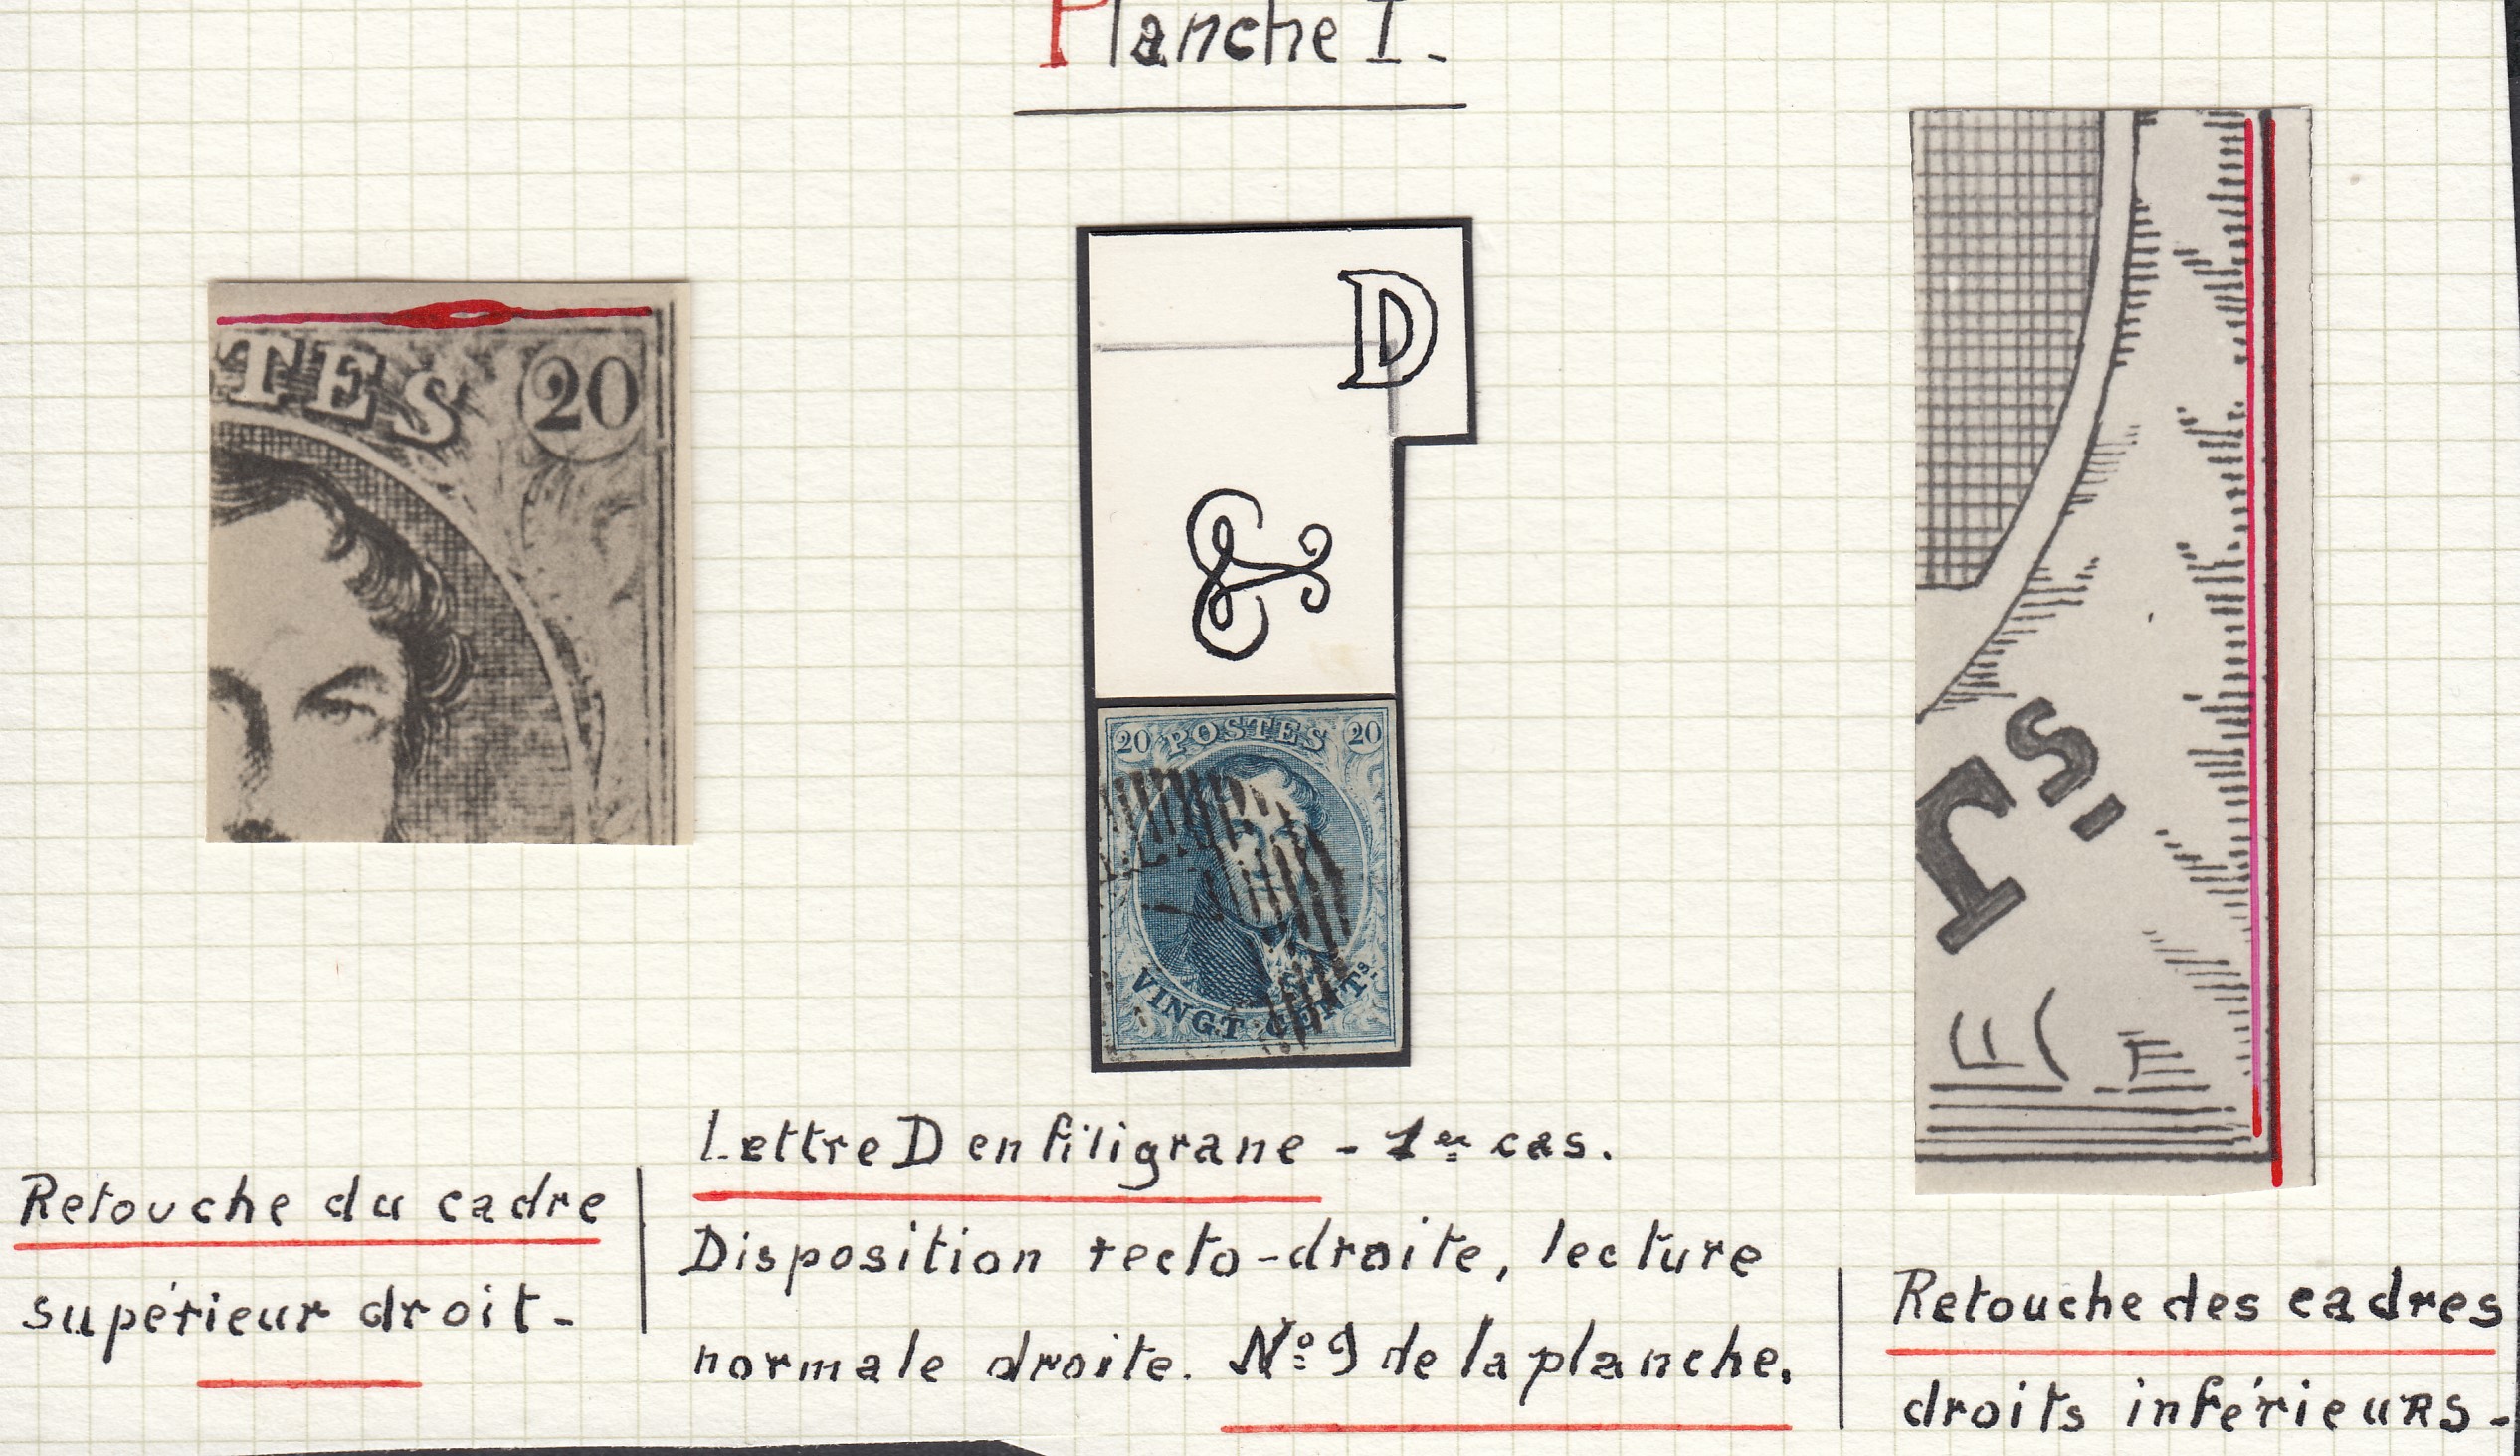 Planche I.
TES 20
D
20 POSTES 20
VINGT CENTS.
TS
Retouche du cadre
supérieur droit-
Lettre D en filigrane - 1er cas.
Disposition recto-droite, lecture
normale droite. Nº 9 de la planche.
Retouche des cadres
droits inférieurs-